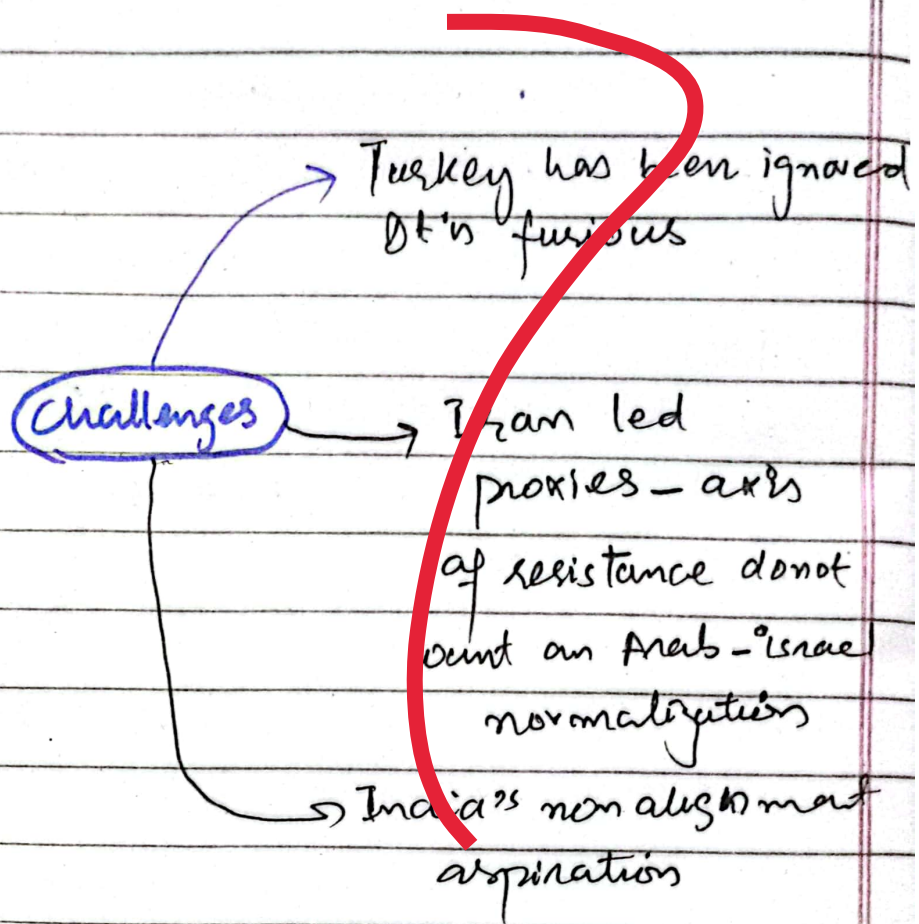 Turkey has been ignored
It's furious
Challenges
Iran led
proxies - axis
of resistance donot
want an Arab-israel
normalization
India's non alignment
aspiration